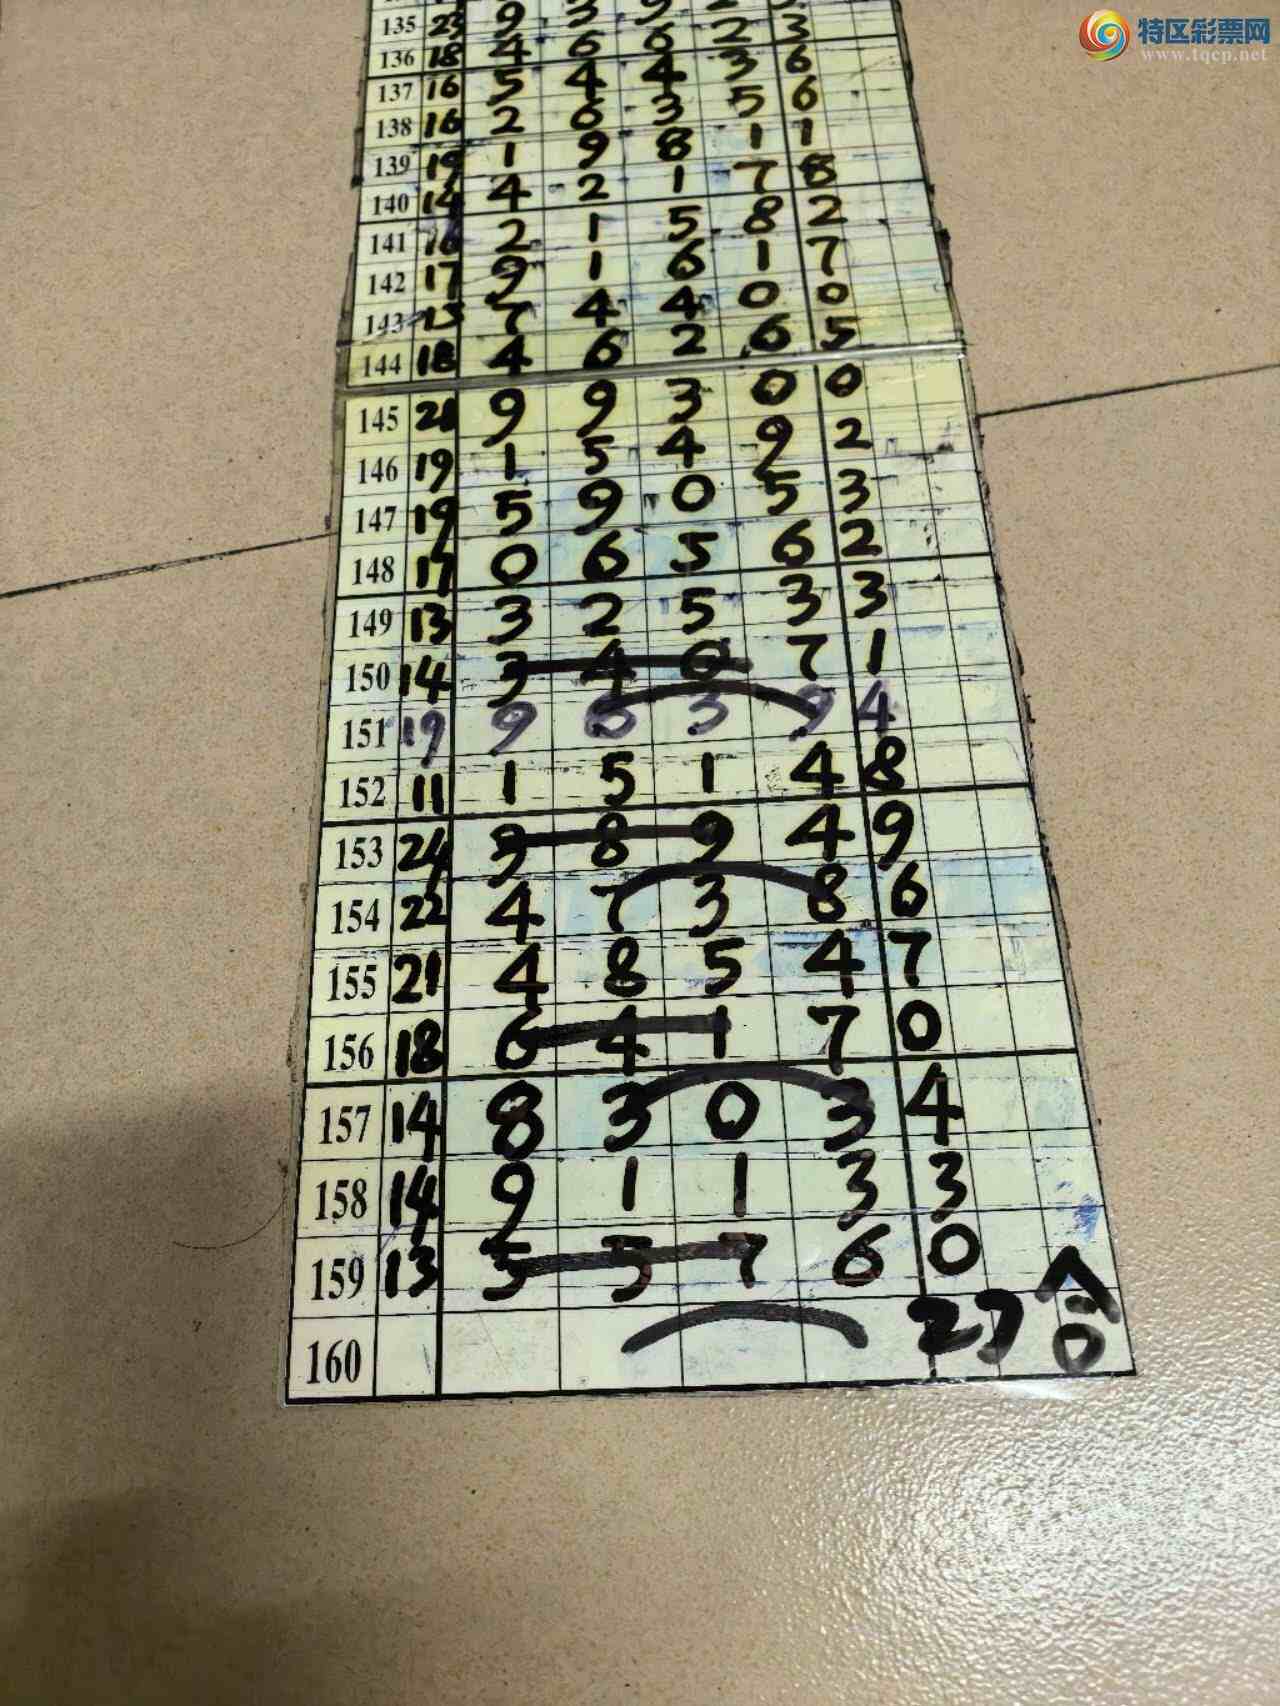 特区彩票网
www.tqcp.net
135 23 9 3 9 2 3
136 18 4 6 6 2 3
137 16 5 4 4 3 6
138 16 2 6 3 5 6
139 19 1 9 8 1 1
140 14 4 2 1 7 8
141 16 2 1 5 8 2
142 17 9 1 6 1 7
143 15 7 4 4 0 0
144 18 4 6 2 6 5
145 21 9 9 3 0 0
146 19 1 5 4 9 2
147 19 5 9 0 5 3
148 17 0 6 5 6 2
149 13 3 2 5 3 3
150 14 3 4 0 7 1
151 19 9 6 3 9 4
152 11 1 5 1 4 8
153 24 3 8 9 4 9
154 22 4 7 3 8 6
155 21 4 8 5 4 7
156 18 6 4 1 7 0
157 14 8 3 0 3 4
158 14 9 1 1 3 3
159 13 5 5 7 6 0
160 27